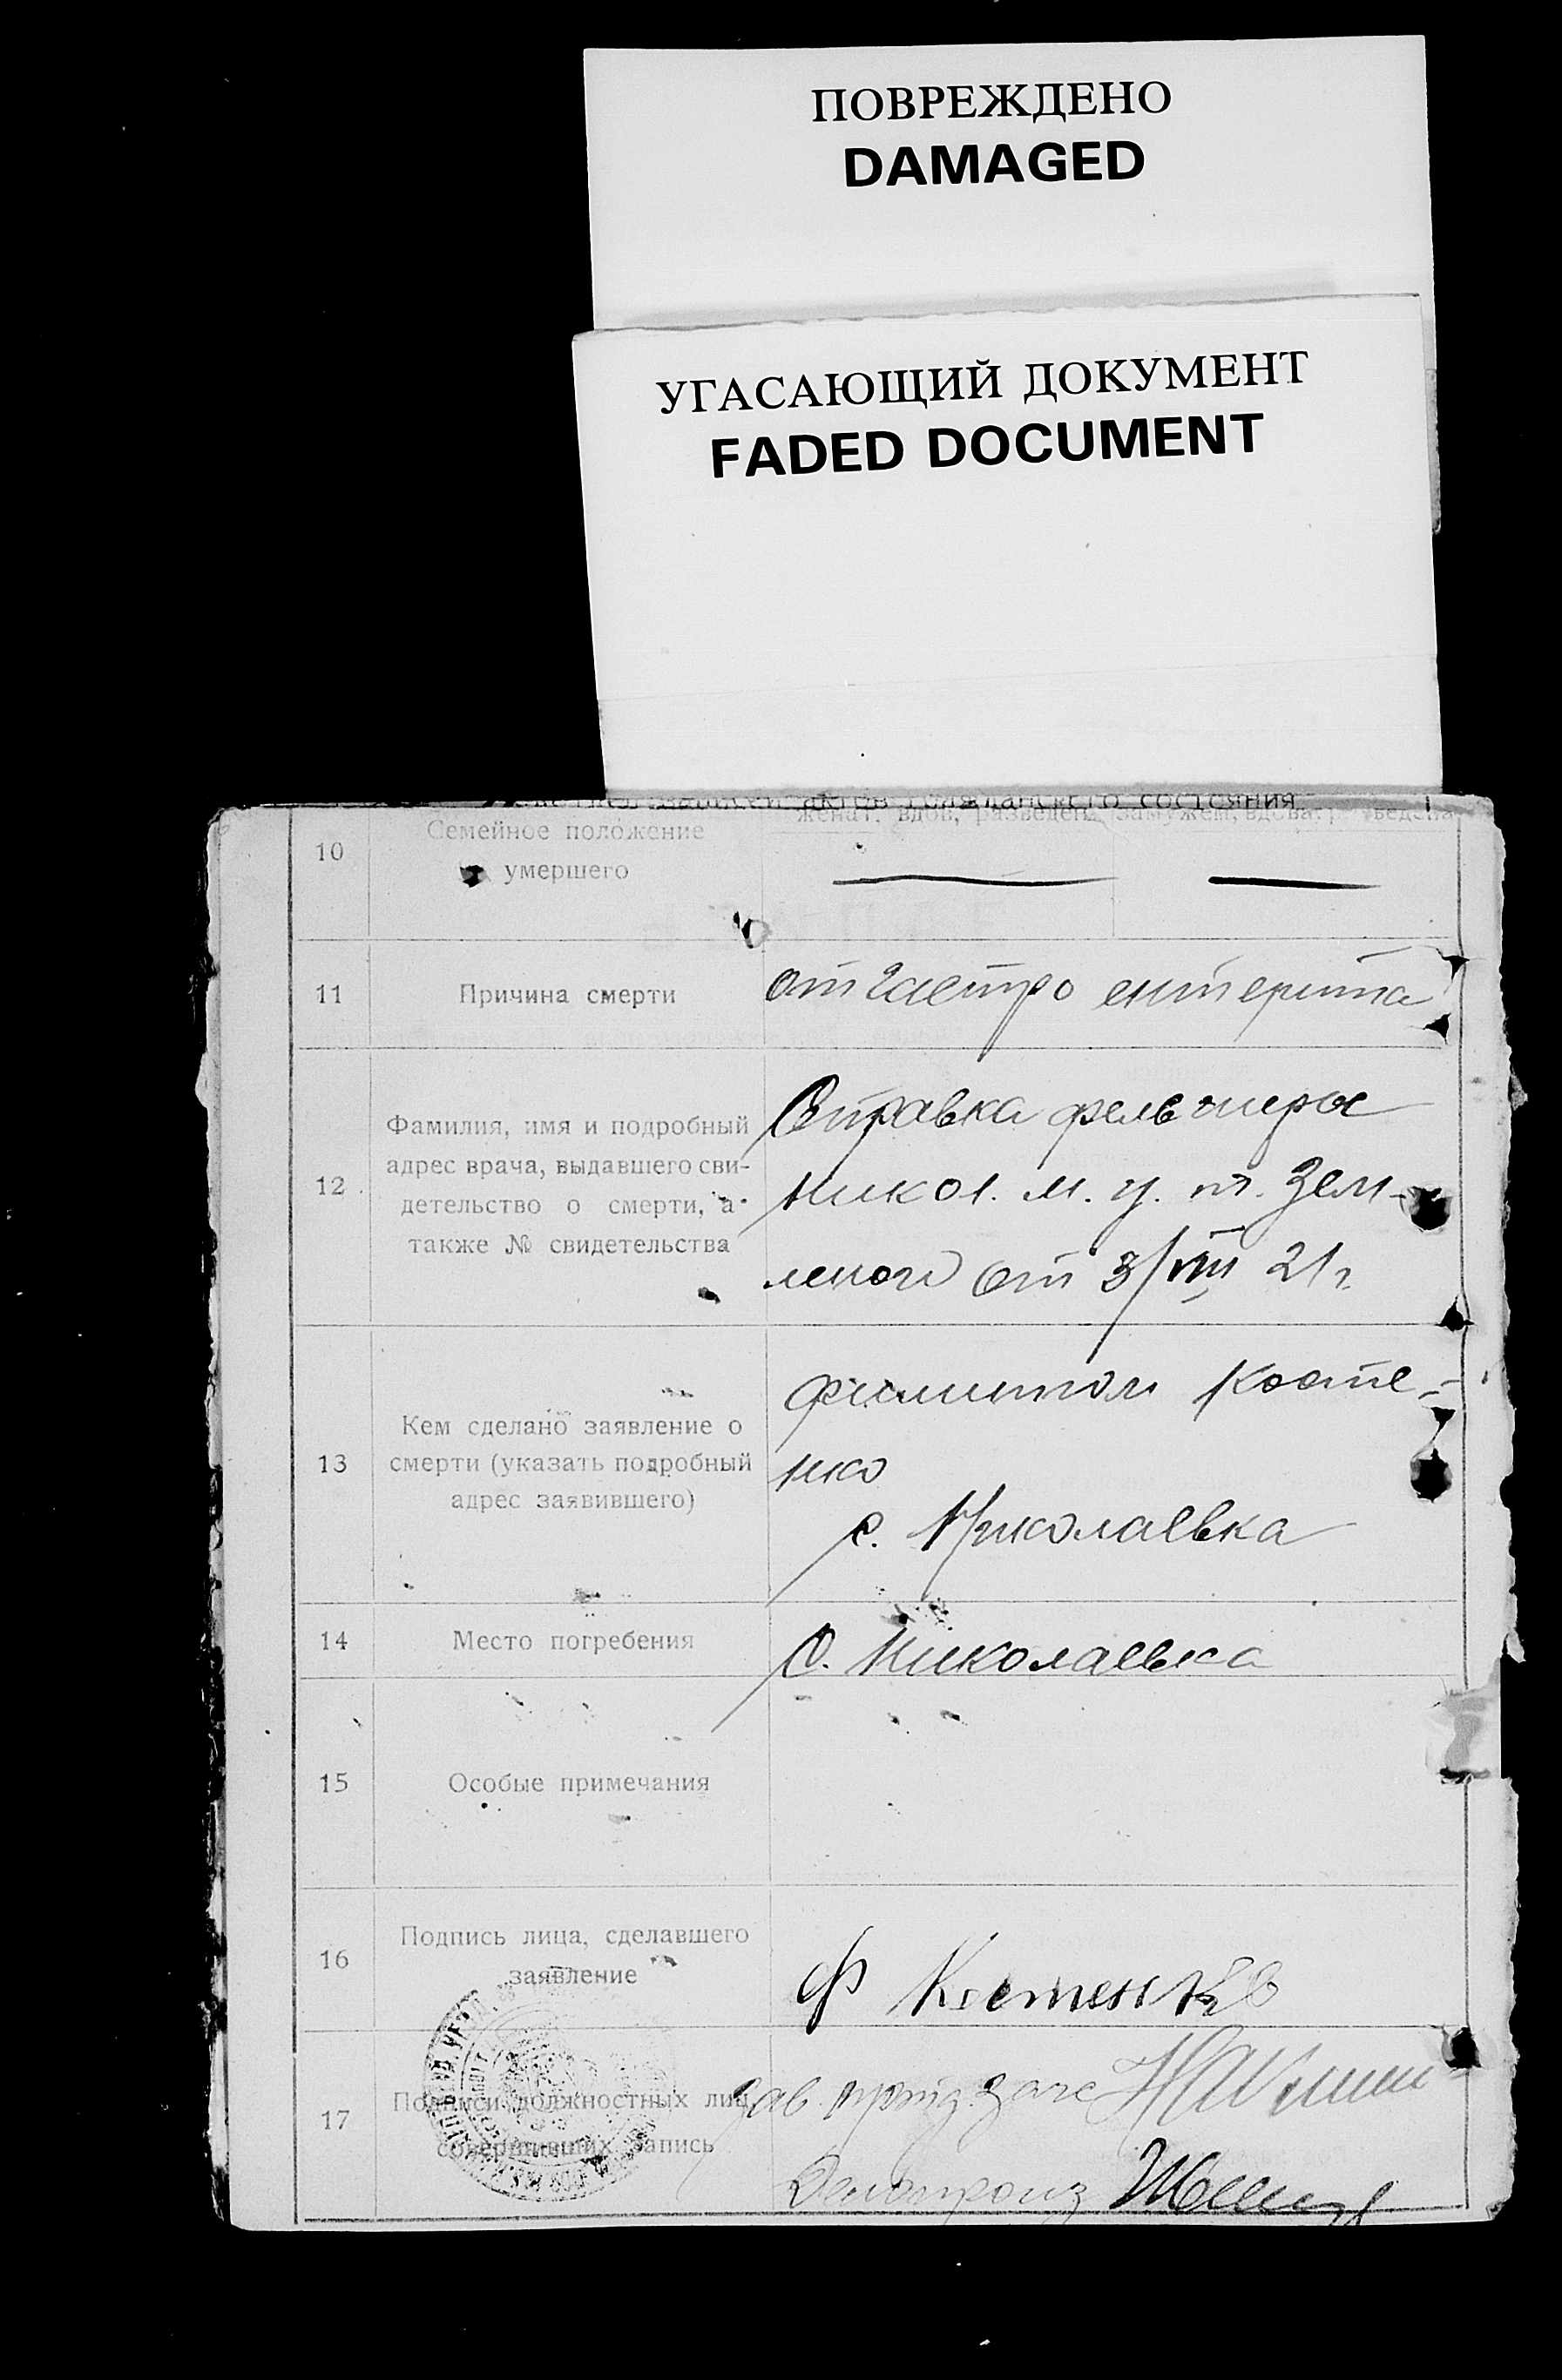 ПОВРЕЖДЕНО
DAMAGED
УГАСАЮЩИЙ ДОКУМЕНТ
FADED DOCUMENT
актов гражданского состояния
10
Семейное положение
умершего
женат, вдов, разведен
замужем, вдова,
11
Причина смерти
от гастро ентерита
12
Фамилия, имя и подробный
адрес врача, выдавшего сви-
детельство о смерти, а
также № свидетельства
Справка фельдшера
Никол. м. у.
от 3/VIII 21 г.
13
Кем сделано заявление о
смерти (указать подробный
адрес заявившего)
Косте-
нко
с. Николаевка
14
Место погребения
С. Николаевка
15
Особые примечания
16
Подпись лица, сделавшего
заявление
Ф Костенко
17
Подписи должностных лиц,
совершивших запись
Зав.
Делопроиз